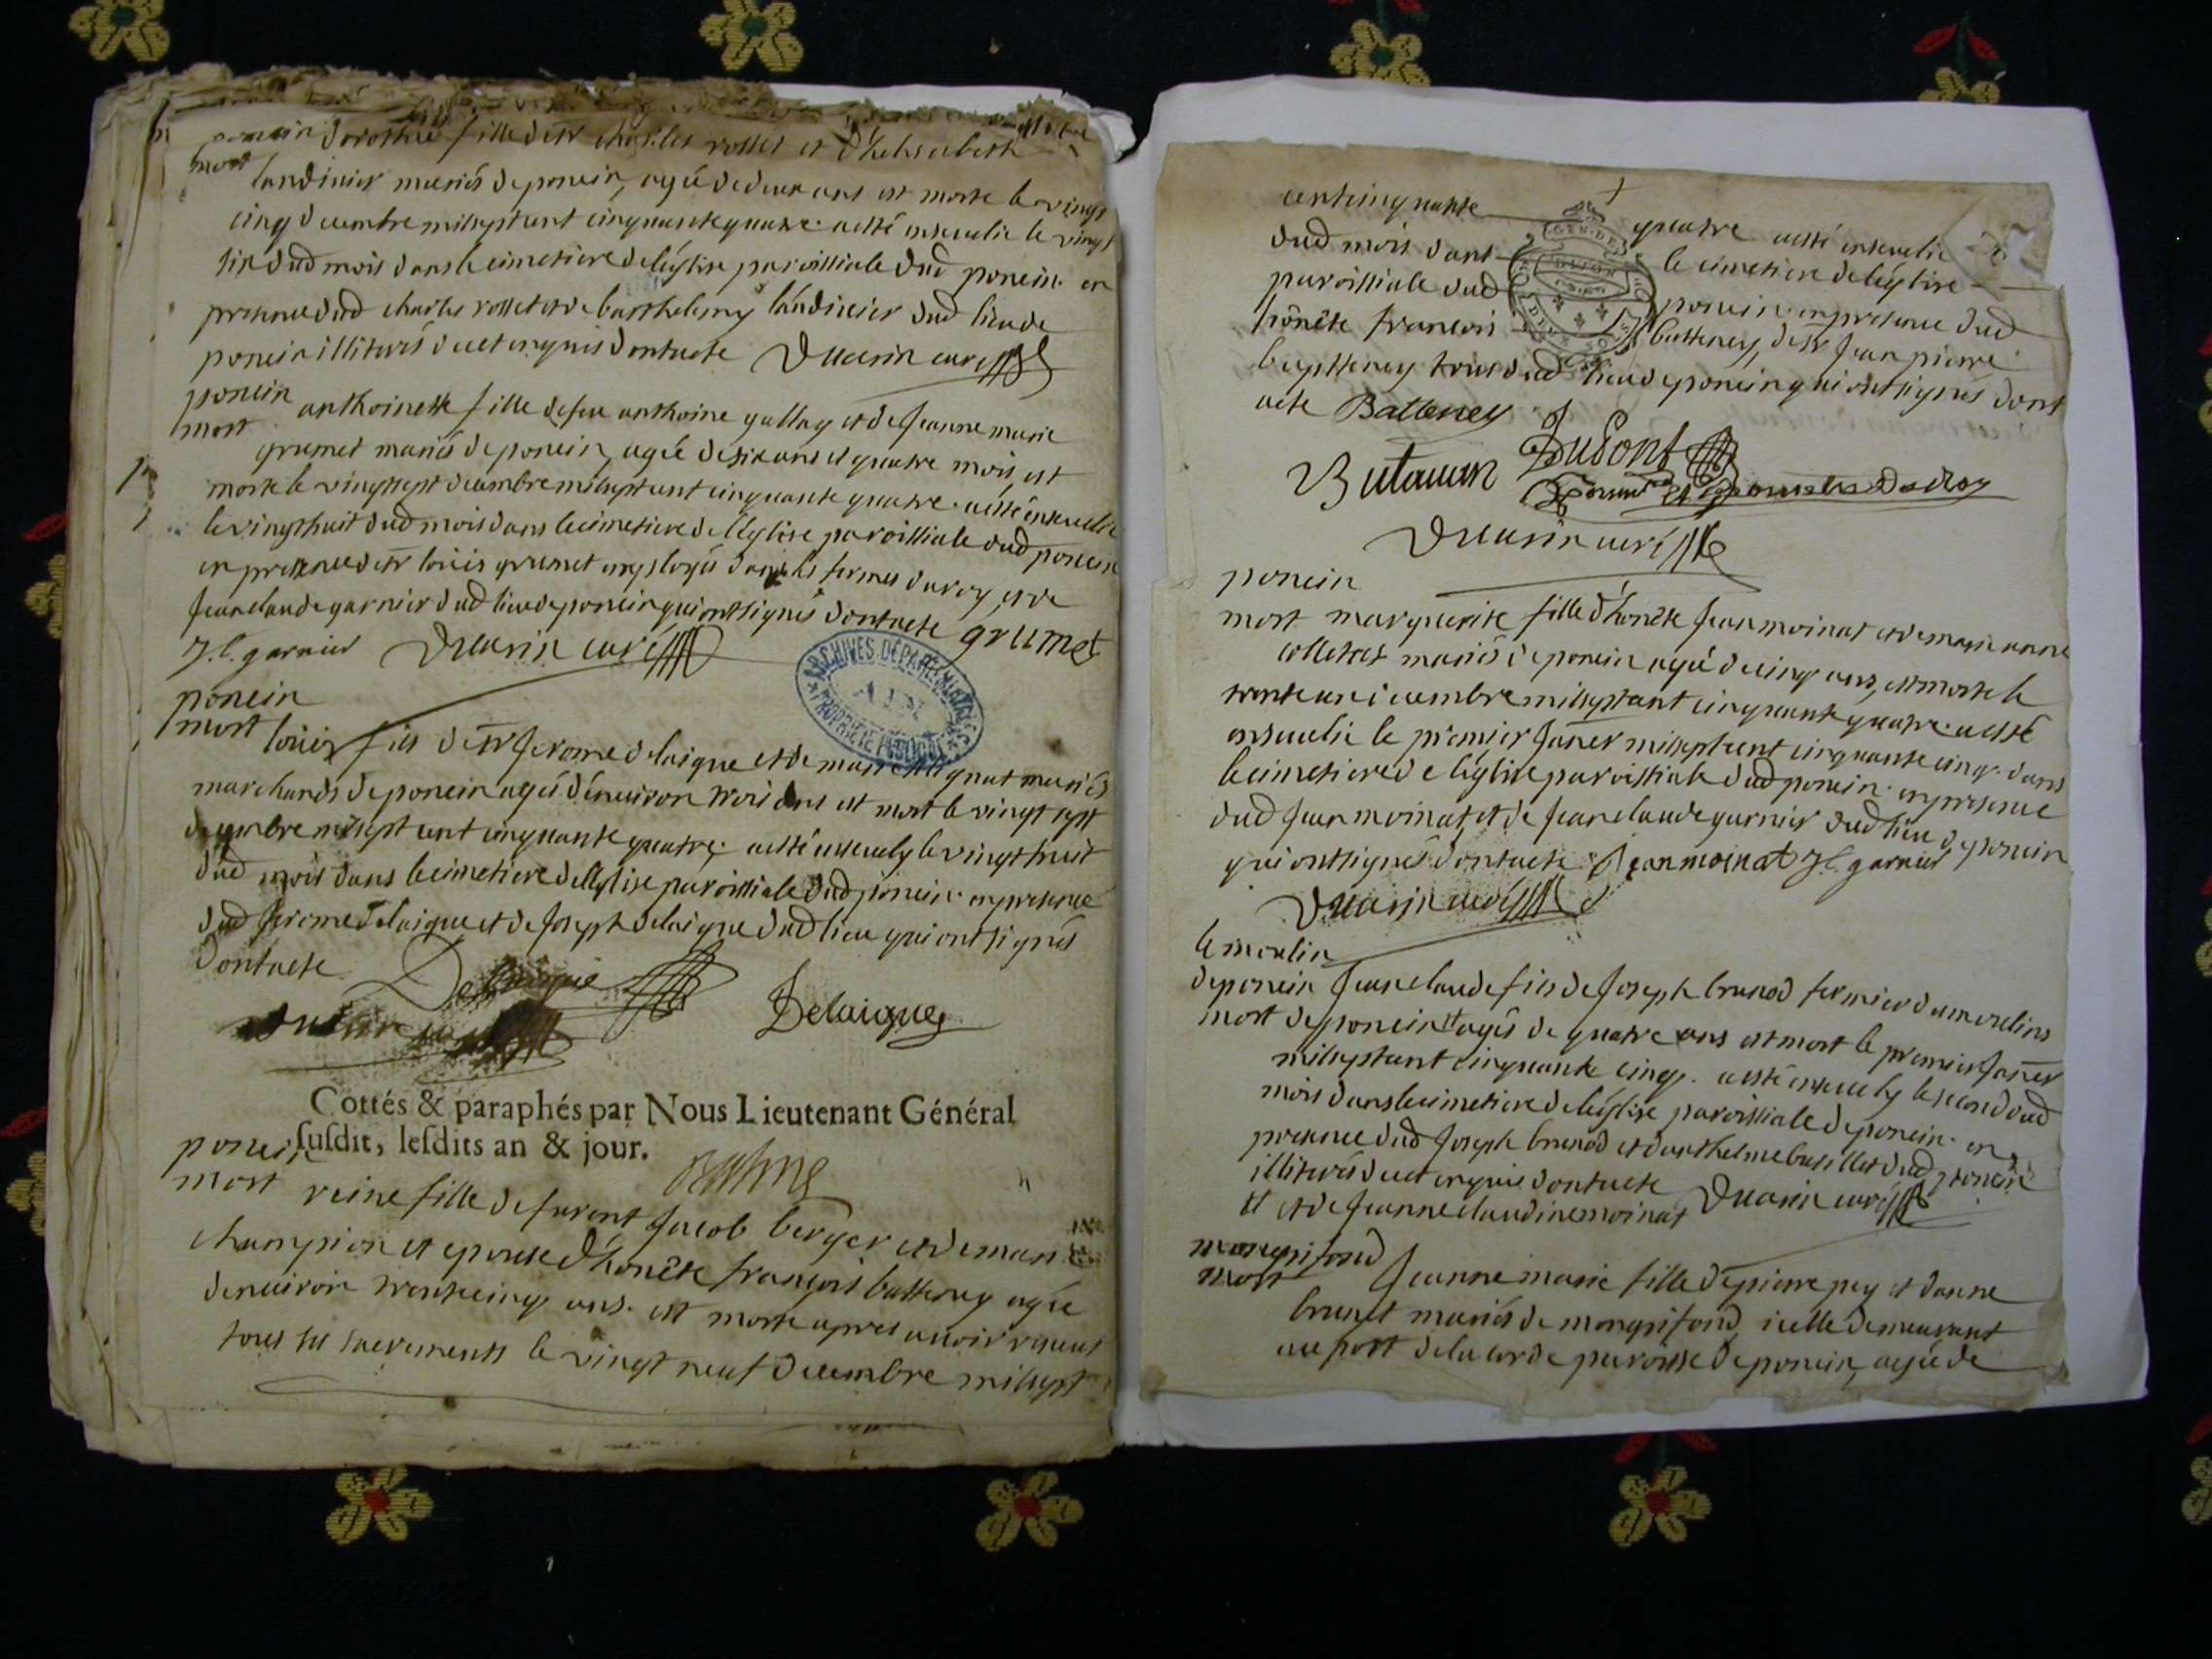 poncin dorothée fille de sr charles rosset et d'helisabeth
mort
landinier mariés de poncin, agée de deux ans est morte le vingt
cinq decembre mil sept cent cinquante quatre. a esté ensevelie le vingt
six dud mois dans le cimetiere de l'église paroissiale dud poncin. en
presence dud charles rosset et de barthelemy landinier dud lieu de
poncin illiterés de ce enquis dont acte
curé
poncin
mort
anthoinette fille de feu anthoine gallay et de jeanne marie
grumet mariés de poncin, agée de six ans et quatre mois, est
morte le vingt sept decembre mil sept cent cinquante quatre. a esté ensevelie
le vingt huit dud mois dans le cimetiere de l'église paroissiale dud poncin
en presence de sr loüis grumet employé dans les fermes du roy, et de
jean claude garnier dud lieu de poncin qui ont signés dont acte grumet
J. C. garnier curé
ARCHIVES DÉPARTEMENTALES
AIN
PROPRIÉTÉ PUBLIQUE
poncin
mort
loüis fils de sr jerome delaigue et de marie mariés
marchands de poncin agé d'environ trois ans est mort le vingt sept
decembre mil sept cent cinquante quatre. a esté ensevely le vingt huit
dud mois dans le cimetiere de l'église paroissiale dud poncin. en presence
dud jerome delaigue et de joseph delaigue dud lieu qui ont signés
dont acte Delaigue
Delaigue
Cottés & paraphés par Nous Lieutenant Général
susdit, lesdits an & jour.
poncin
mort
reine fille de furent jacob berger et de marie
champion et epouse d'honête françois batteney agée
d'environ trente cinq ans. est morte apres avoir receus
tous ses sacrements le vingt neuf decembre mil sept
cent cinquante quatre a esté ensevelie
dud mois dans le cimetiere de l'église
paroissiale dud poncin en presence dud
honête francois batteney, de sr jean pierre
tous dud lieu de poncin qui ont signés dont
acte Batteney
GEN. DE
DIJON
DEUX SOLS
Dupont
curé
poncin
mort marguerite fille d'honête jean moinat et de marie anne
colletat mariés de poncin agée de cinq ans, est morte le
trente un decembre mil sept cent cinquante quatre. a esté
ensevelie le premier janer mil sept cent cinquante cinq. dans
le cimetiere de l'église paroissiale dud poncin. en presence
dud jean moinat, et de jean claude garnier dud lieu de poncin
qui ont signés dont acte jean moinat J. C. garnier
curé
le moulin
de poncin
mort
jean claude fils de joseph brunod fermier du moulins
de poncin # agés de quatre ans est mort le premier janer
mil sept cent cinquante cinq. a esté ensevely le second dud
mois dans le cimetiere de l'église paroissiale de poncin. en
presence dud joseph brunod et d'anthelme dud poncin
illiterés de ce enquis dont acte curé
# et de jeanne claudine moinat
mongrifond
mort
jeanne marie fille de pierre pey et d'anne
brunet mariés de mongrifond, icelle demeurant
au port de la corde paroisse de poncin, agée de